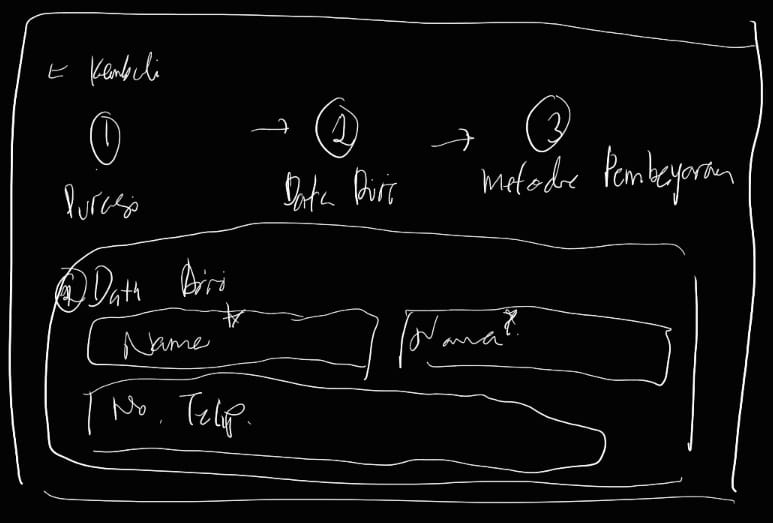 ← Kembali
1 → 2 → 3
Durasi Data Diri Metode Pembayaran
2 Data Diri
Name* Nama*
No. Telp.